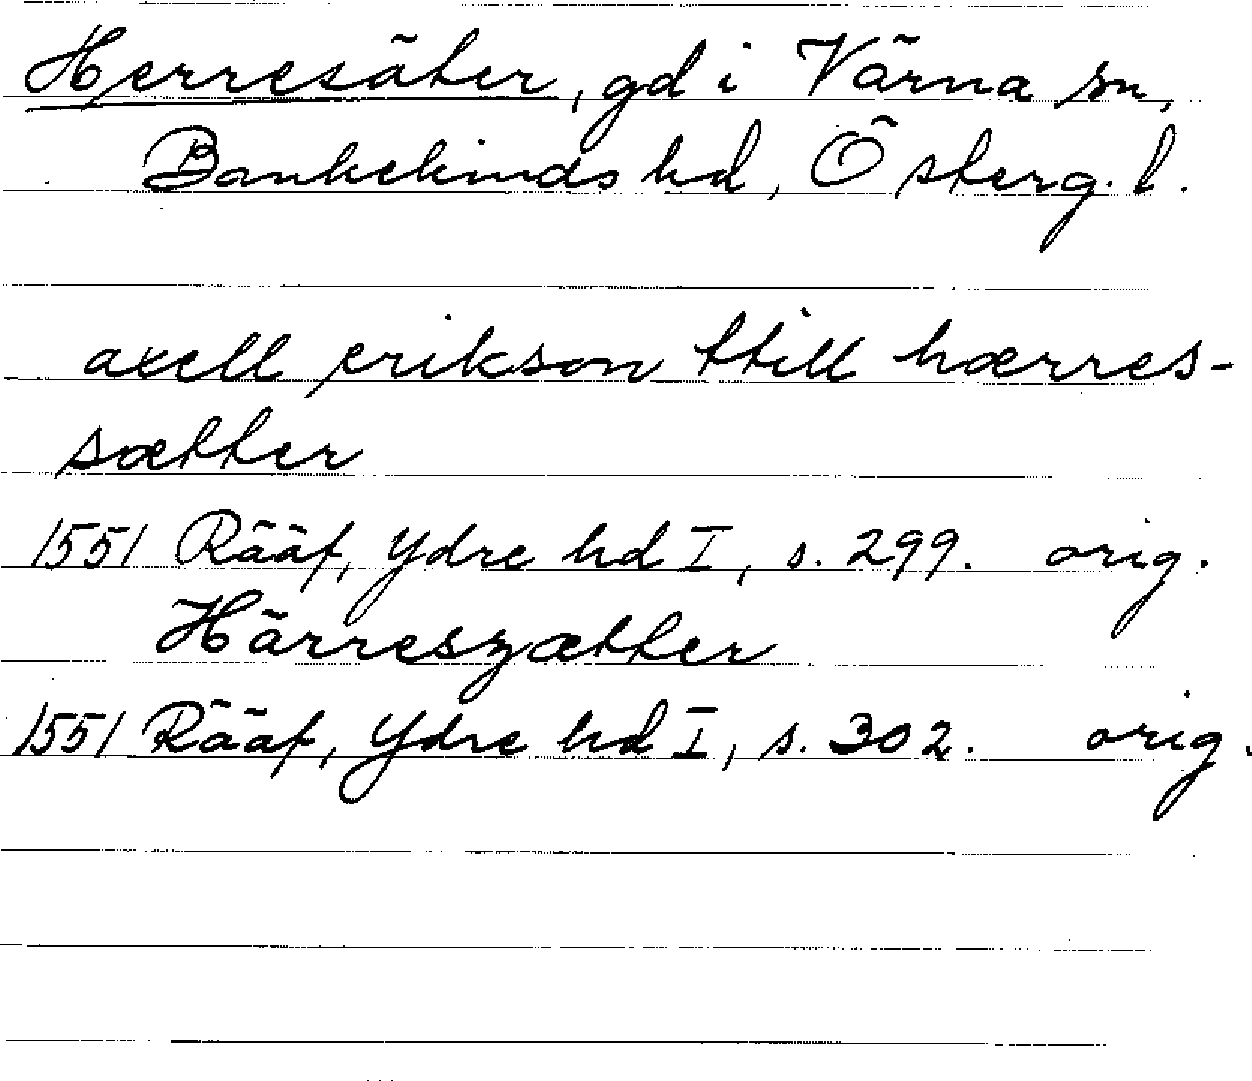 Herresäter, gd i Värna sn,
Bankekinds hd, Österg. l.
axell erikson ttill hærres-
sætter
1551 Rääf, Ydre hd I, s. 299. orig.
Härreszætter
1551 Rääf, Ydre hd I, s. 302. orig.